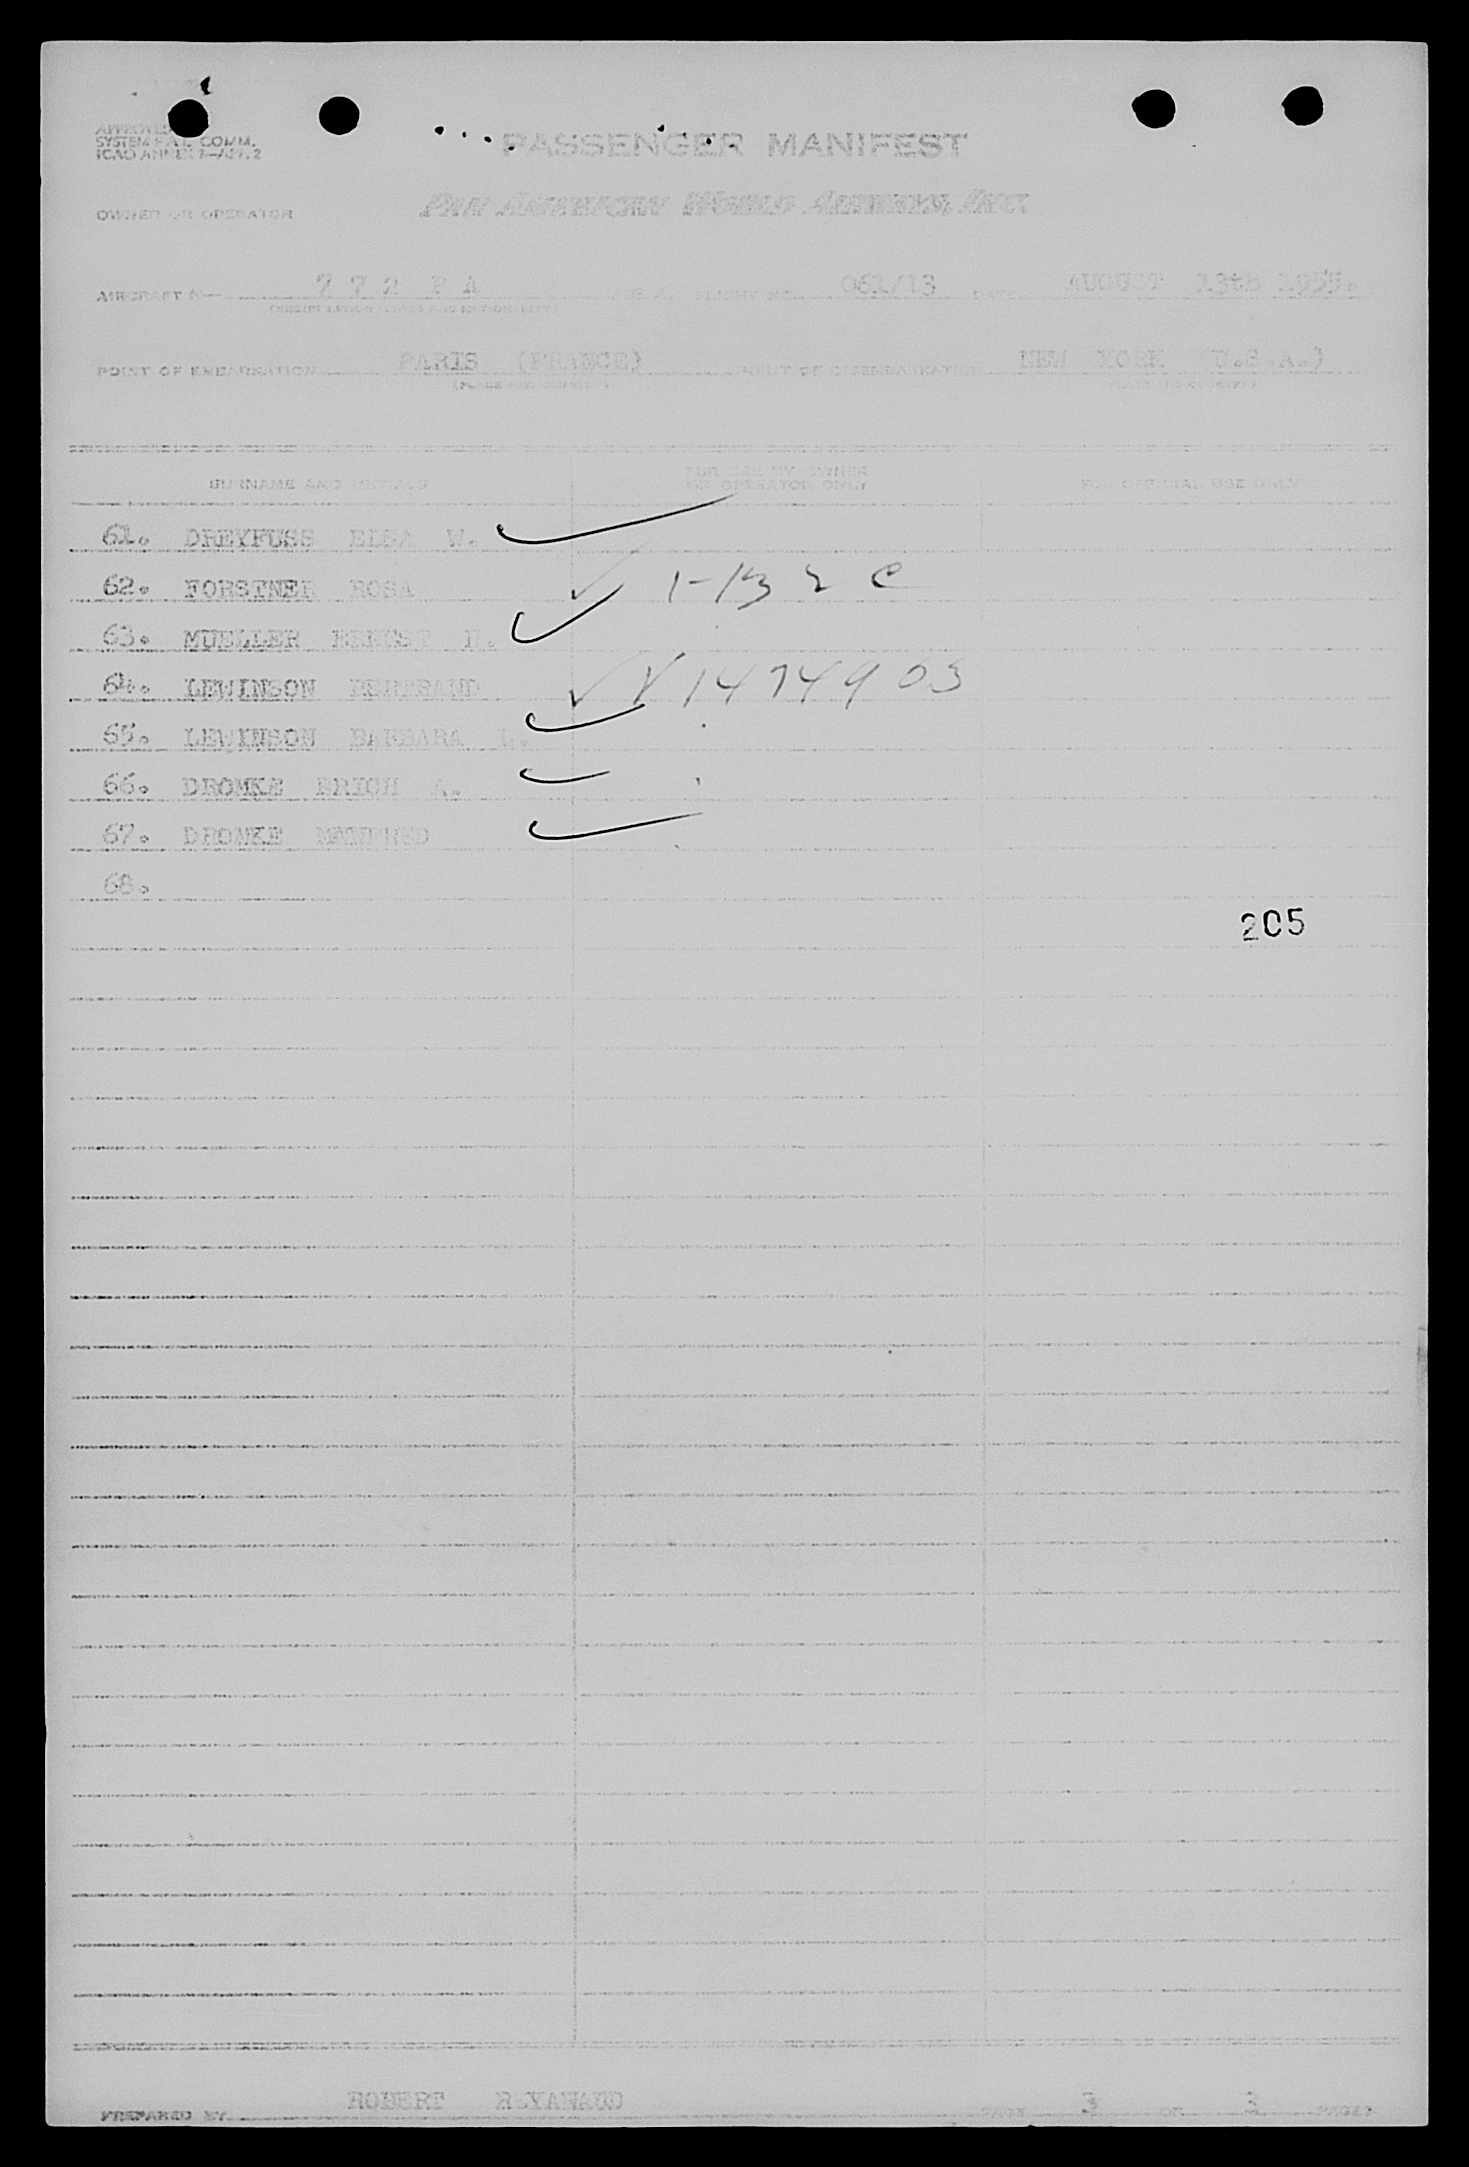 APPROVED
SYSTEM F.A.L. COMM.
ICAO ANNEX 9—APP. 2
PASSENGER MANIFEST
OWNER OR OPERATOR PAN AMERICAN WORLD AIRWAYS, INC.
AIRCRAFT N— 7 7 2 P A FLIGHT NO. 061/13 DATE AUGUST 13th 1955.
POINT OF EMBARKATION PARIS (FRANCE) POINT OF DISEMBARKATION NEW YORK (U.S.A.)
SURNAME AND INITIALS FOR USE BY OWNER OR OPERATOR ONLY FOR OFFICIAL USE ONLY
61. DREYFUSS ELSA W.
62. FORSTNER ROSA
63. MUELLER ERNST H.
64. LEWINSON BERTRAND V1474903
65. LEWINSON BARBARA L.
66. DROMKE ERICH A.
67. DROMKE MANFRED
68.
205
PREPARED BY ROBERT PAGE 3 OF 3 PAGES